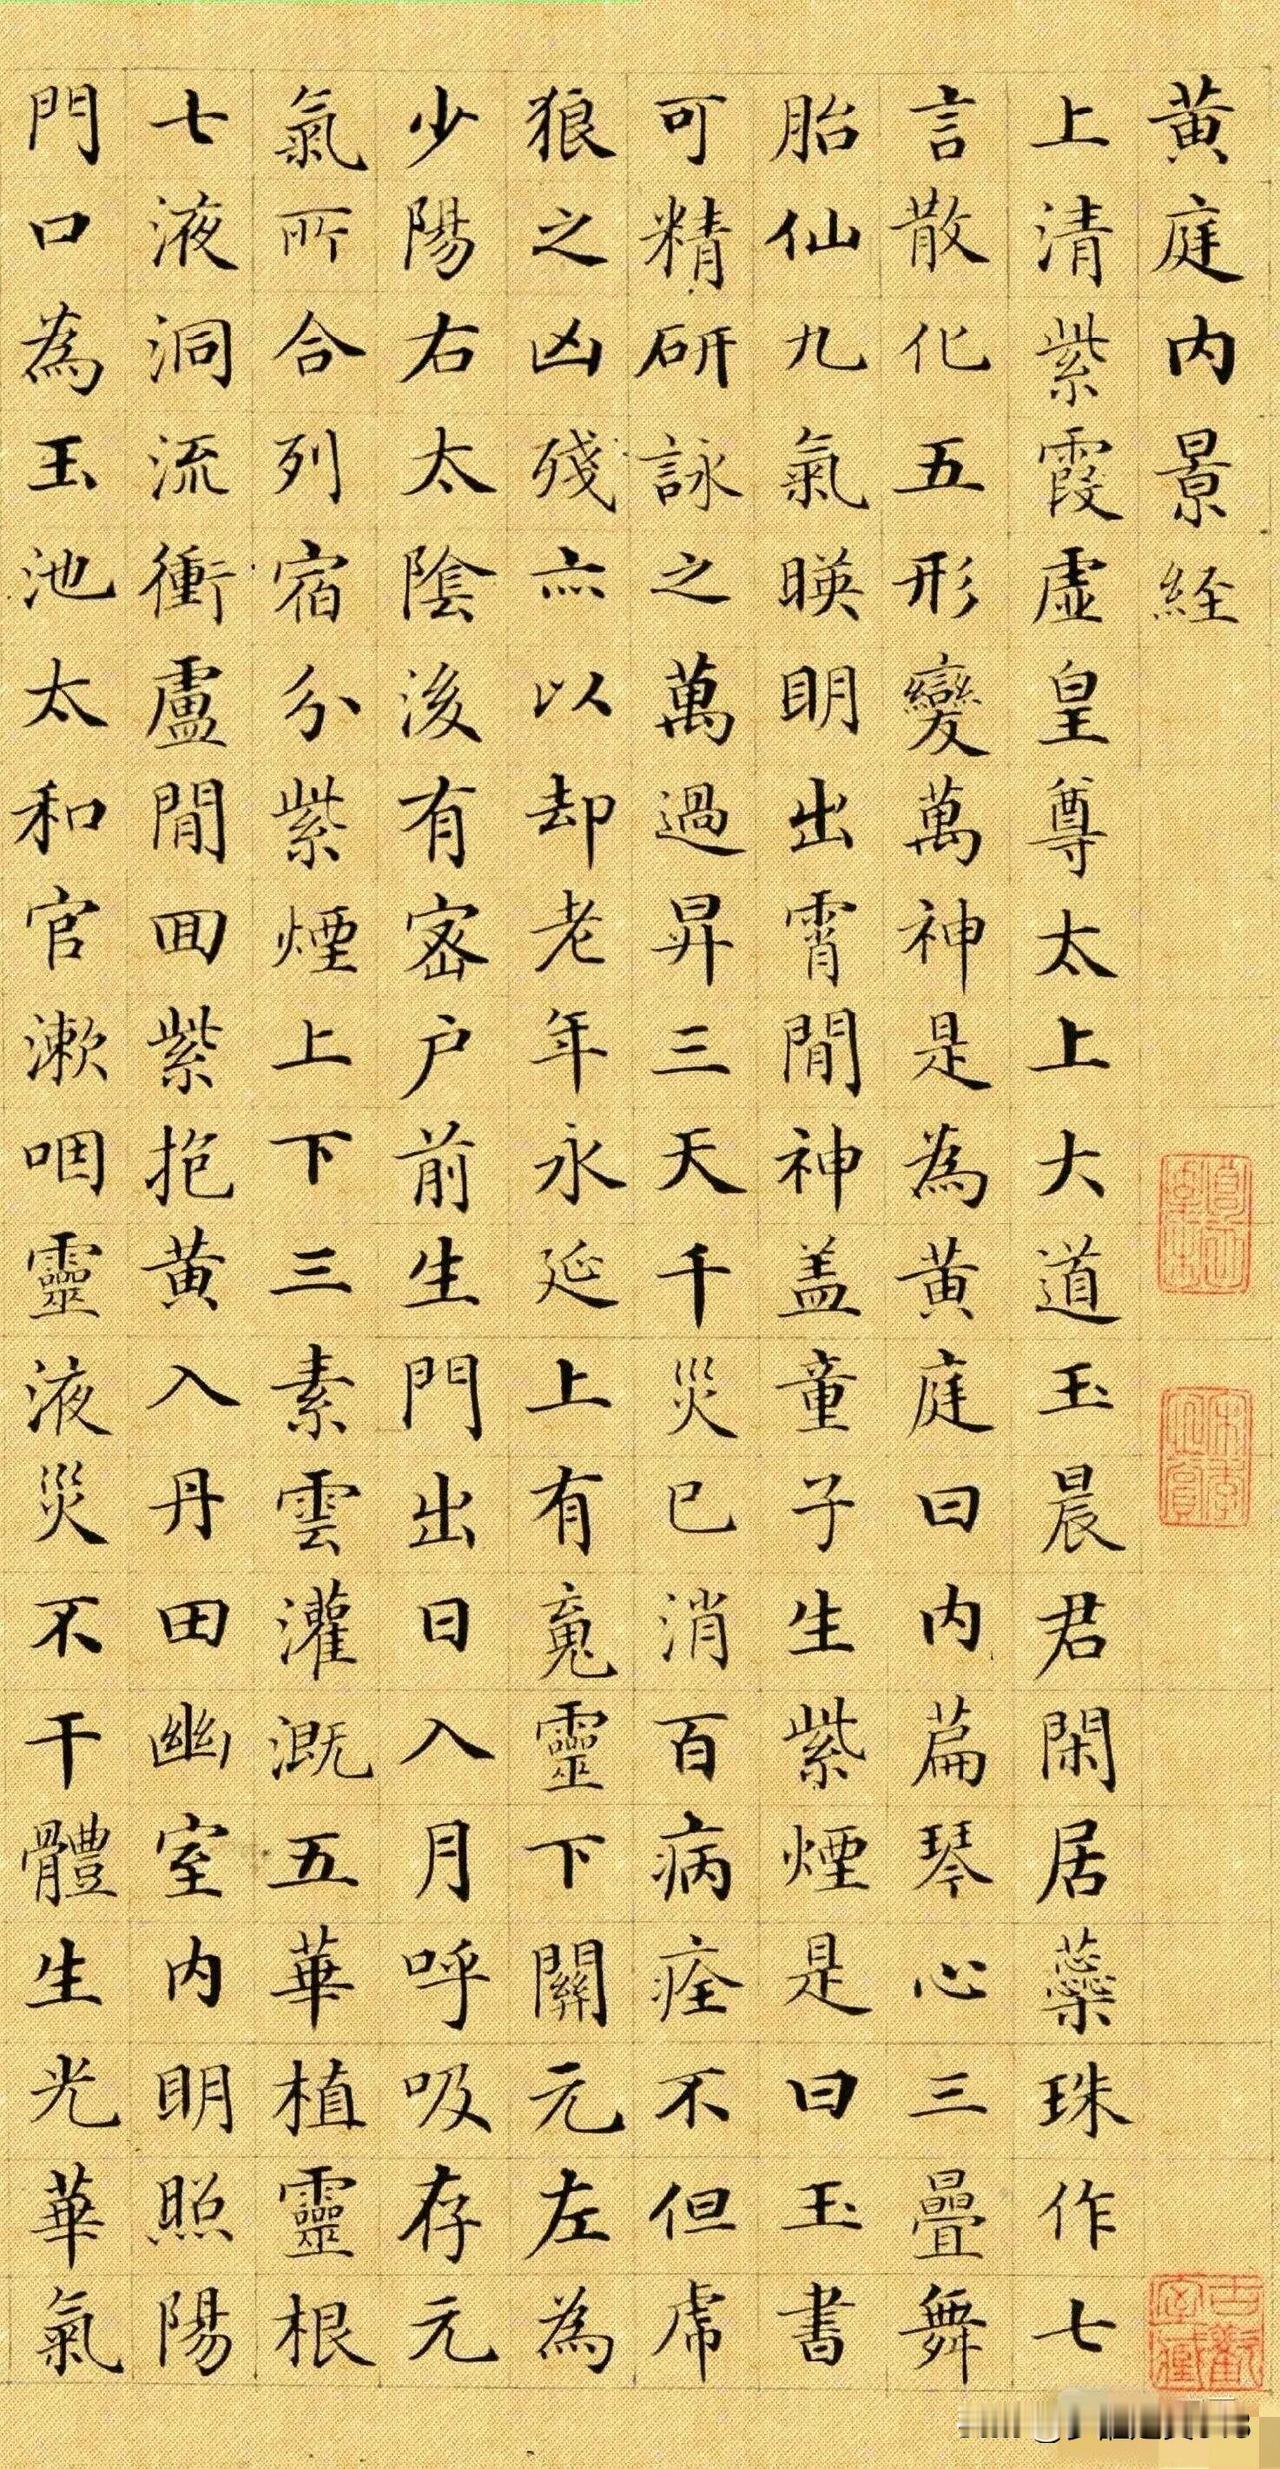 黄庭内景経
上清紫霞虚皇尊太上大道玉晨君閑居蘂珠作七
言散化五形變萬神是為黄庭曰内萹琴心三疊舞
胎仙九氣暎明出霄間神盖童子生紫煙是曰玉書
可精研詠之萬過昇三天千災已消百病痊不但虎
狼之凶殘亦以却老年永延上有䰟靈下關元左為
少陽右太陰後有密户前生門出日入月呼吸存元
氣所合列宿分紫煙上下三素雲灌溉五華植靈根
七液洞流衝盧間回紫抱黄入丹田幽室内明照陽
門口為玉池太和官漱咽靈液災不干體生光華氣